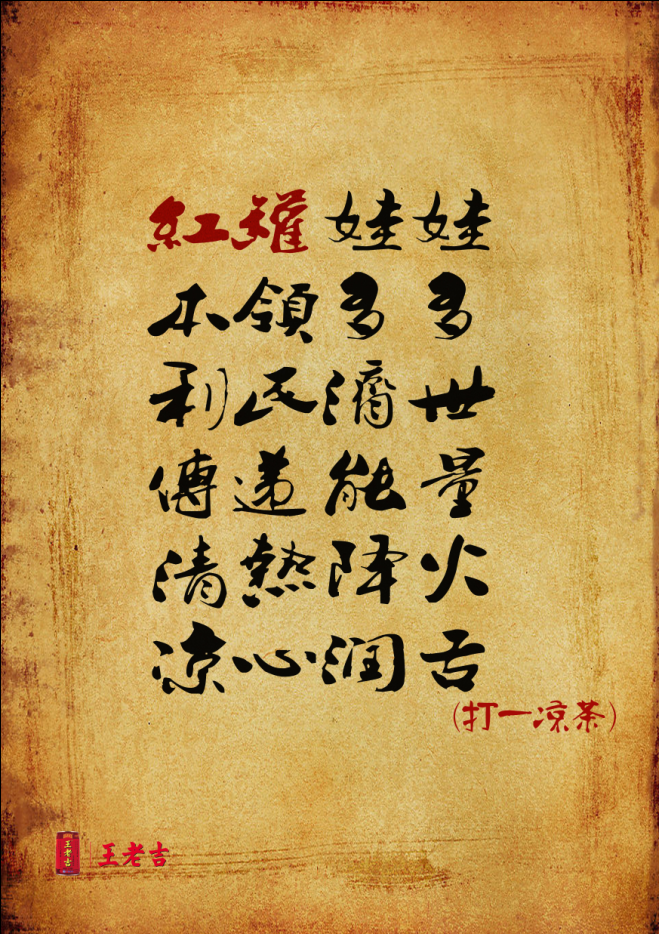 紅罐娃娃
本領多多
利民濟世
傳遞能量
清熱降火
凉心潤舌
(打一凉茶)
王老吉
王老吉